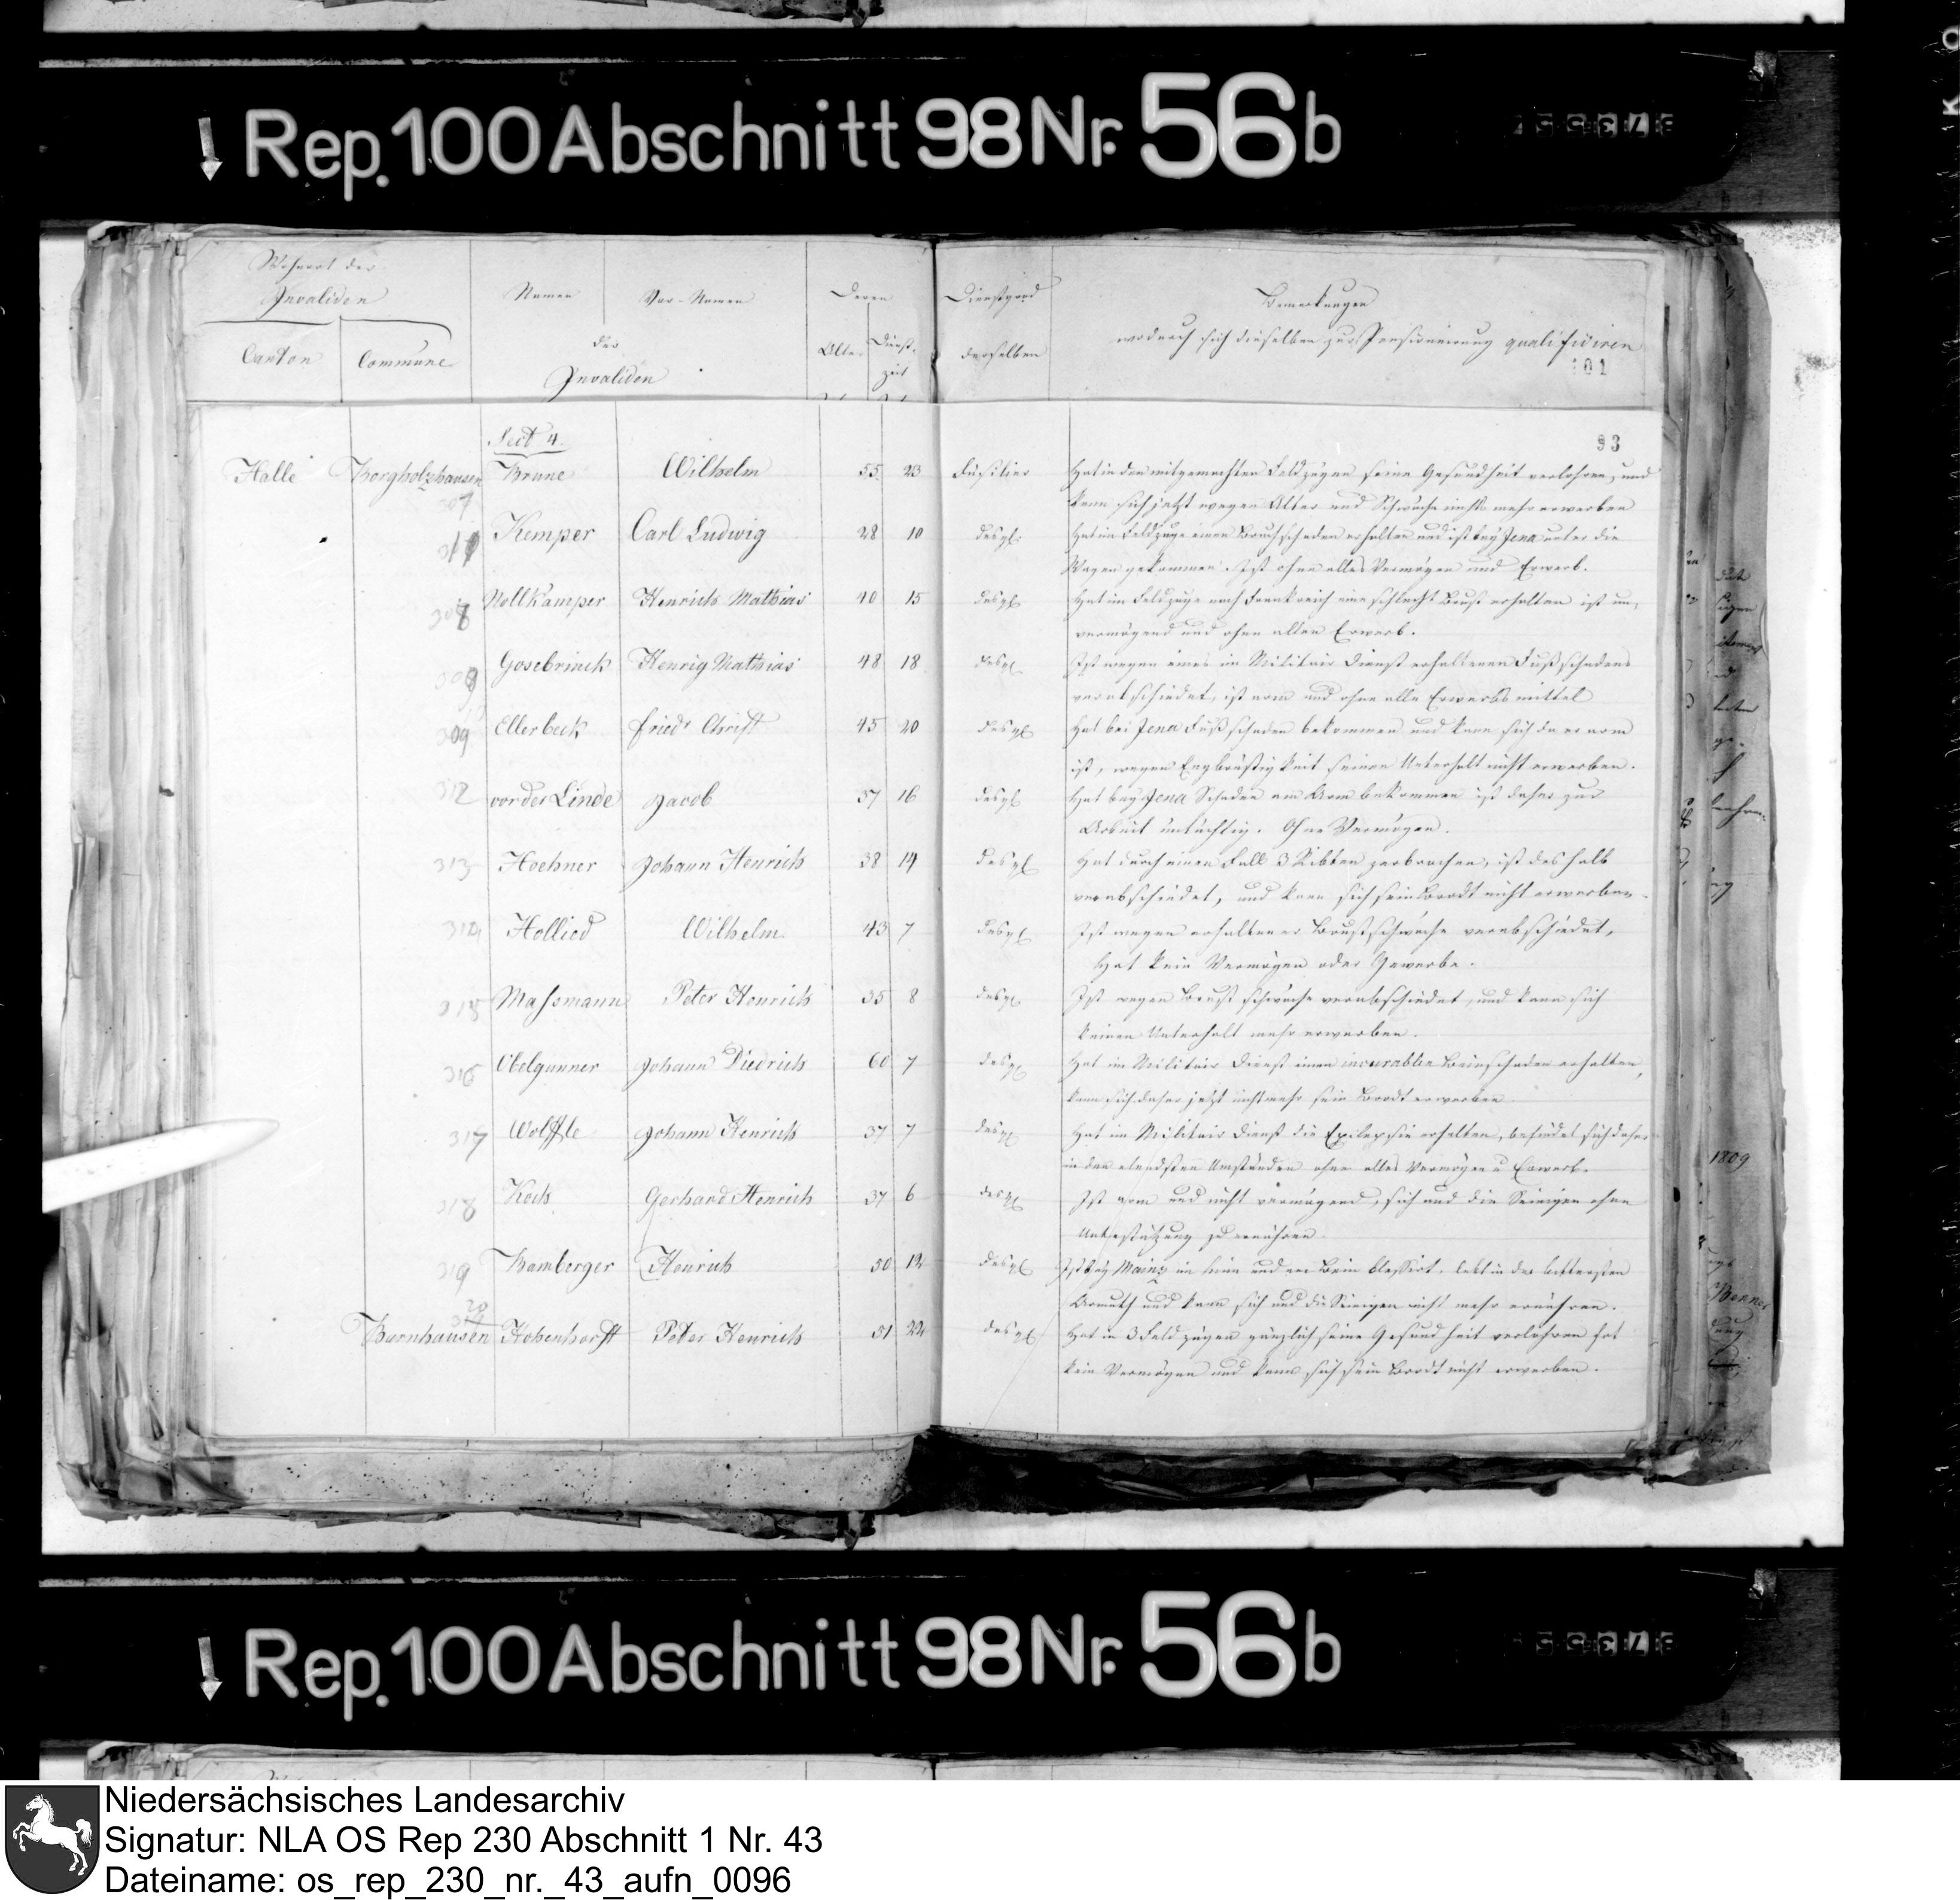 Rep. 100 Abschnitt 98 Nr. 56b
Wohnort der
Invaliden
Canton
Commune
Namen
Vor-Namen
der
Invaliden
Deren
Alter
Dienst-
zeit
Dienstgrad
derselben
Bemerkungen
wodurch sich dieselben zur Pensionirung qualifiziren
101
93
Sect 4.
Halle Borgholzhausen Brune Wilhelm 55 23 Fusilier Hat in den mitgemachten Feldzügen seine Gesundheit verlohren, und
307 kann sich jetzt wegen Alter und Schwäche nichts mehr erwerben
Kemper Carl Ludwig 28 10 desgl. Hat im Feldzuge einen Bruchschaden erhalten und ist bey Jena unter die
311 Wagen gekommen. Ist ohne alles Vermögen und Erwerb.
308 Nollkamper Henrich Mathias 40 15 desgl Hat im Feldzuge nach Frankreich eine schlecht Brust erhalten ist un-
vermögend und ohne allen Erwerb.
Gosebrinck Henrig Mathias 48 18 desgl Ist wegen eines im Militair Dienst erhaltenen Fußschadens
verabschiedet, ist arm und ohne alle Erwerbs mittel
309 Ellerbeck Friedr Christ 45 20 desgl Hat bei Jena Fußschaden bekommen und kann sich da er arm
ist, wegen Engbrüstigkeit seinen Unterhalt nicht erwerben.
312 von der Linde Jacob 37 16 desgl Hat bey Jena Schaden am Arm bekommen ist daher zur
Arbeit untüchtig. Ohne Vermögen.
313 Hoehner Johann Henrich 38 14 desgl Hat durch einen Fall 3 Ribben zerbrochen, ist deshalb
verabschiedet, und kann sich sein Brodt nicht erwerben.
314 Hollied Wilhelm 43 7 desgl Ist wegen erhaltener Brustschwäche verabschiedet,
Hat kein Vermögen oder Gewerbe.
315 Maßmann Peter Henrich 35 8 desgl Ist wegen Brust schwäche verabschiedet, und kann sich
keinen Unterhalt mehr erwerben.
316 Obelgunner Johann Diedrich 60 7 desgl Hat im Militair Dienst einen incurablen Beinschaden erhalten,
kann sich daher jetzt nicht mehr sein Brodt erwerben
317 Wölffle Johann Henrich 37 7 desgl Hat im Militair Dienst die Epilepsie erhalten, befindet sich daher
in den elendsten Umständen ohne alles Vermögen u Erwerb.
318 Koch Gerhard Henrich 37 6 desgl Ist arm und nicht vermögend, sich und die Seinigen ohne
Unterstützung zu ernähren.
319 Bamberger Henrich 50 12 desgl Ist bey Mainz im und am Bein blessirt. lebt in der bittersten
Armuth und kann sich und die Seinigen nicht mehr ernähren.
20
Barnhausen Hohenhorst Peter Henrich 51 22 desgl Hat in 3 Feldzügen gänzlich seine Gesundheit verlohren hat
kein Vermögen und kann sich sein Brodt nicht erwerben.
1809
Rep. 100 Abschnitt 98 Nr. 56b
Niedersächsisches Landesarchiv
Signatur: NLA OS Rep 230 Abschnitt 1 Nr. 43
Dateiname: os_rep_230_nr._43_aufn_0096